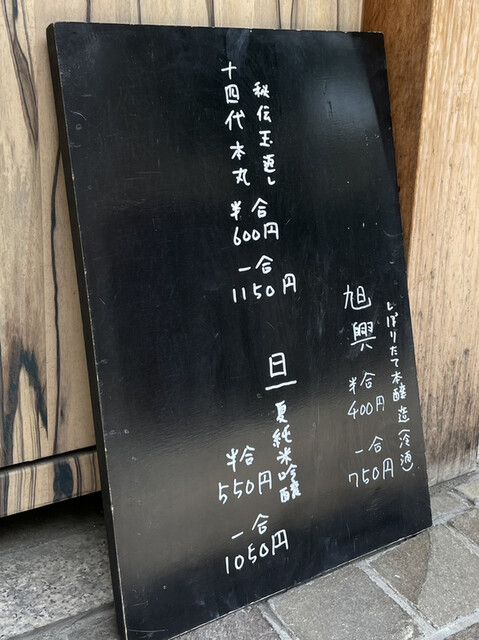 旭興
しぼりたて本醸造(冷酒)
半合
400円
一合
750円
秘伝玉返し
十四代本丸
半合
600円
一合
1150円
旦
夏純米吟醸
半合
550円
一合
1050円